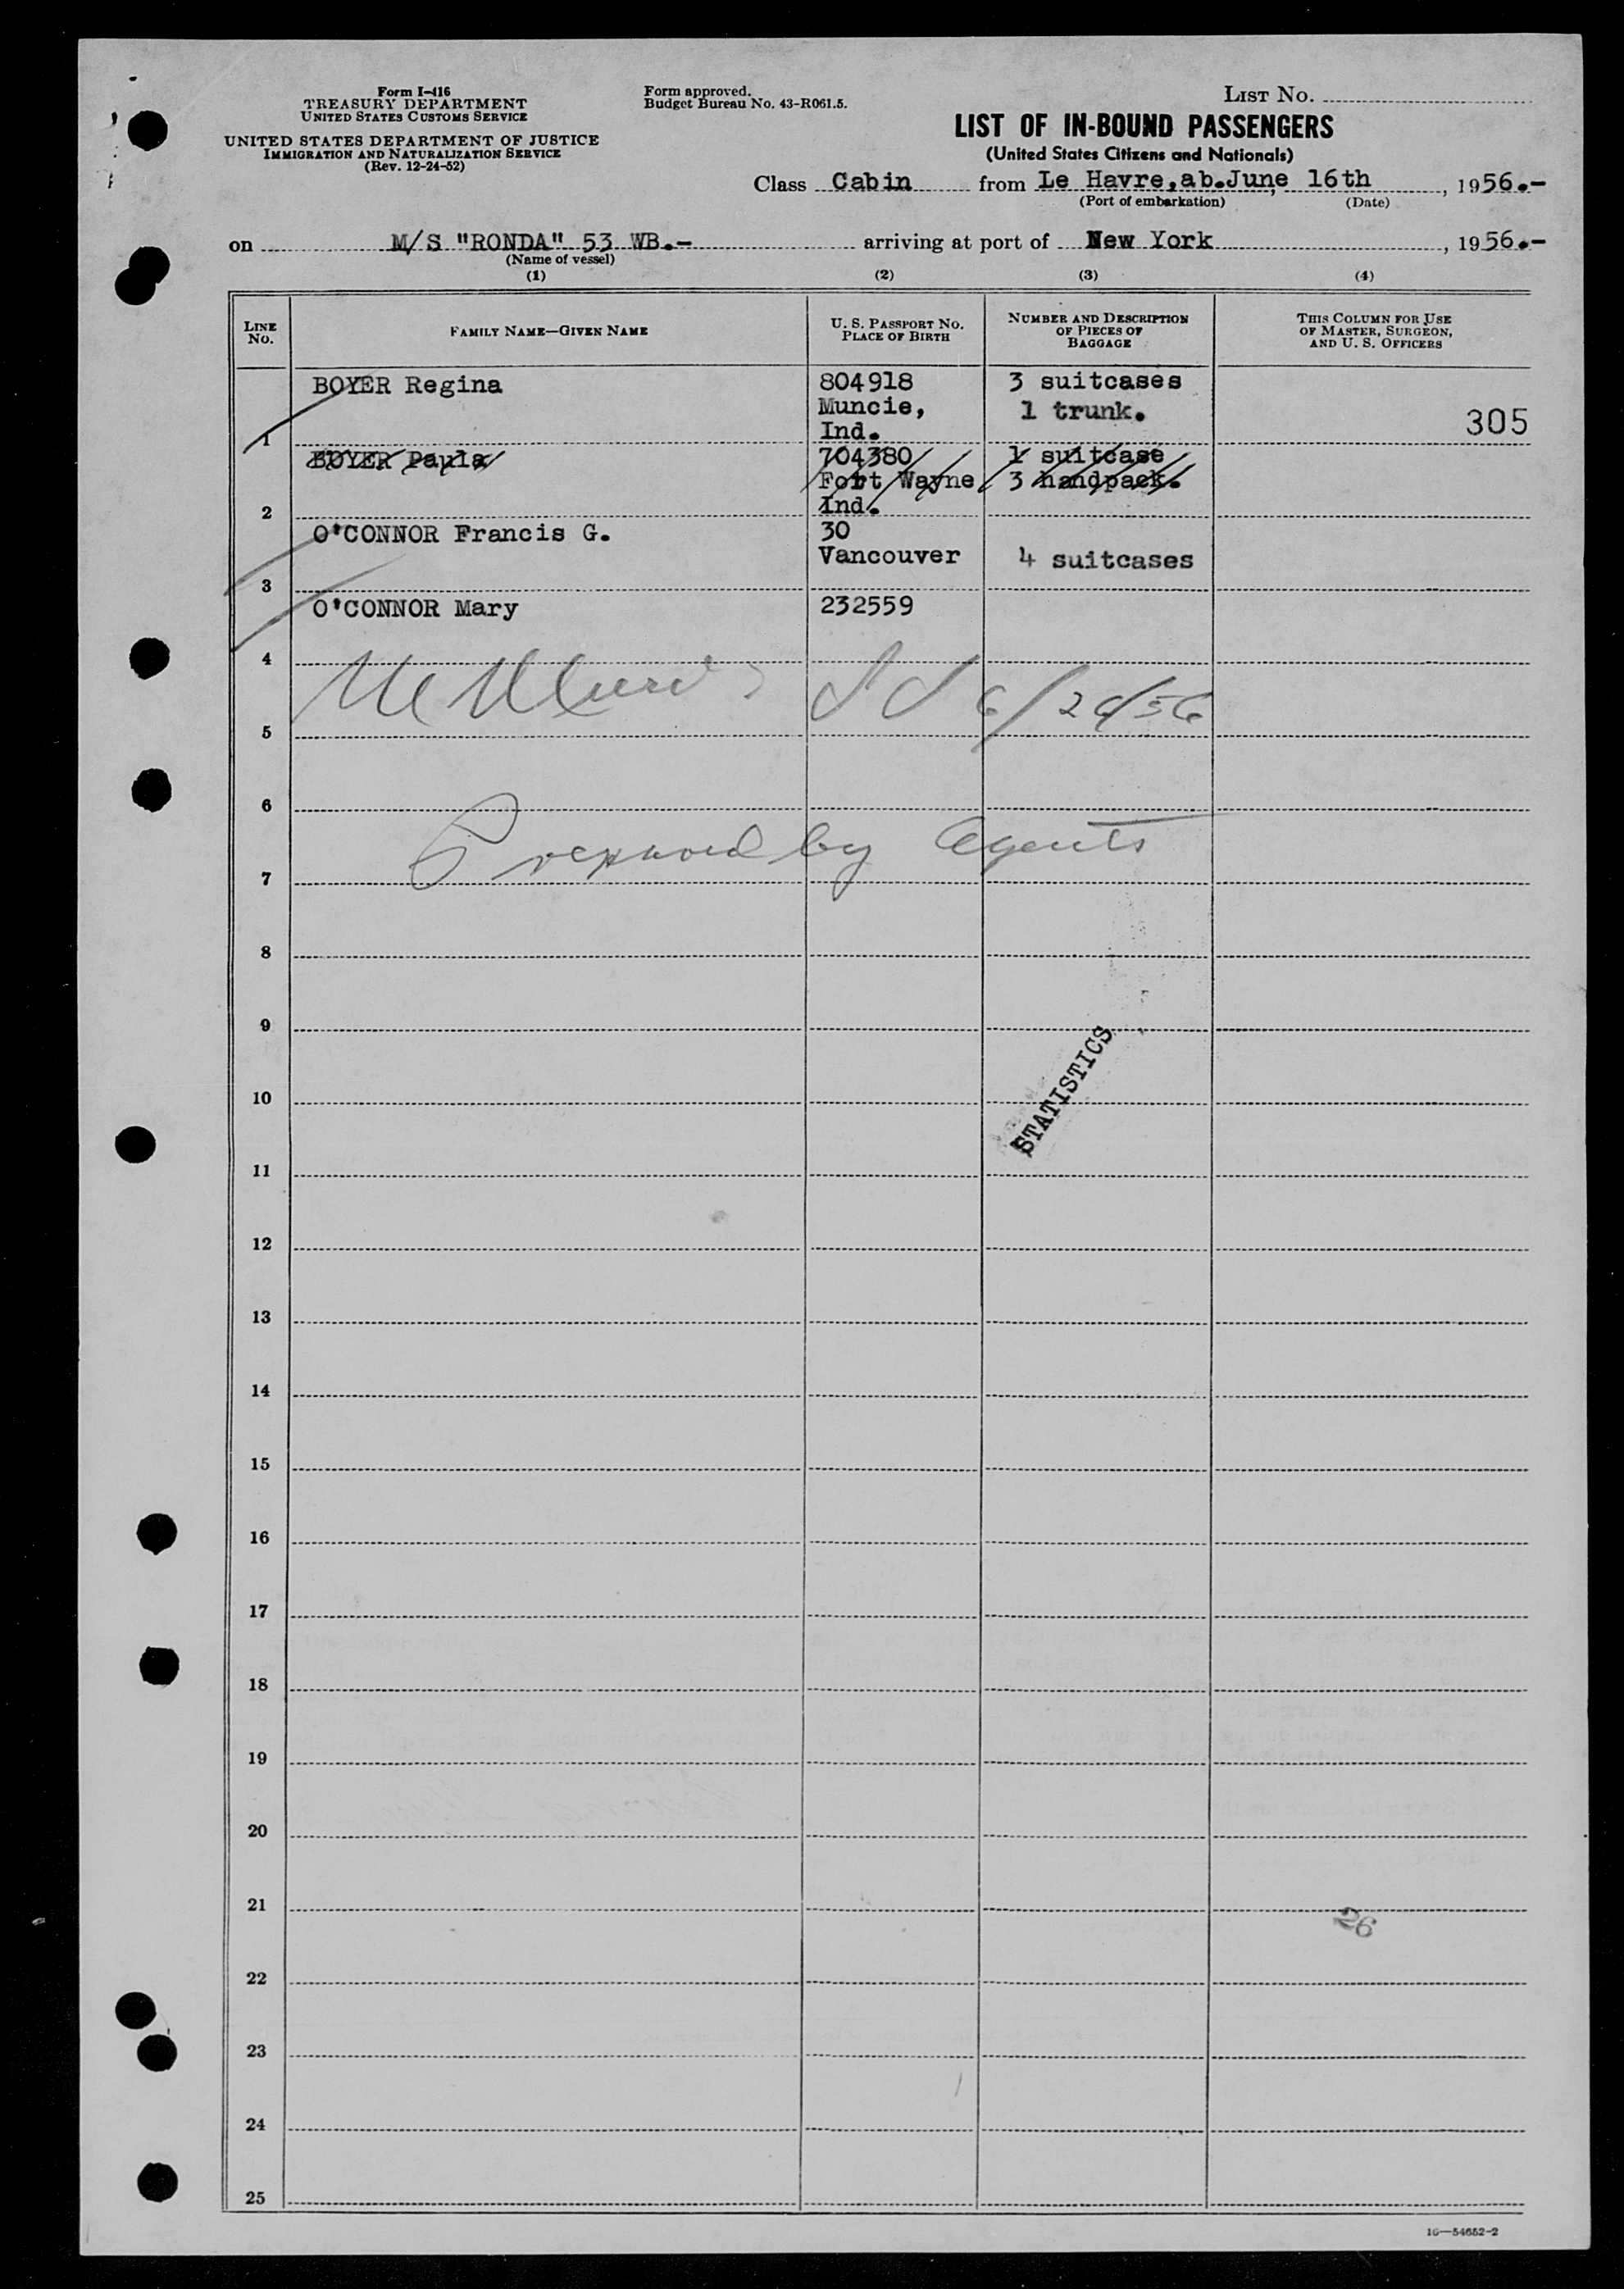 Form I-416
TREASURY DEPARTMENT
UNITED STATES CUSTOMS SERVICE
UNITED STATES DEPARTMENT OF JUSTICE
IMMIGRATION AND NATURALIZATION SERVICE
(Rev. 12-24-52)
Form approved.
Budget Bureau No. 43-R061.5.
LIST NO.
LIST OF IN-BOUND PASSENGERS
(United States Citizens and Nationals)
Class Cabin from Le Havre, ab. June, 16th, 1956.-
(Port of embarkation) (Date)
on M/S "RONDA" 53 WB.- arriving at port of New York, 1956.-
(Name of vessel)
(1) (2) (3) (4)
LINE NO.
FAMILY NAME—GIVEN NAME
U. S. PASSPORT NO.
PLACE OF BIRTH
NUMBER AND DESCRIPTION
OF PIECES OF
BAGGAGE
THIS COLUMN FOR USE
OF MASTER, SURGEON,
AND U. S. OFFICERS
BOYER Regina 804918 3 suitcases
Muncie, 1 trunk.
305
1 Ind.
BOYER Paula 704380 1 suitcase
Fort Wayne 3 handpack.
2 Ind.
O'CONNOR Francis G. 30
Vancouver 4 suitcases
3
O'CONNOR Mary 232559
4
5
6
Prepared by Agents
7
8
9
STATISTICS
10
11
12
13
14
15
16
17
18
19
20
21
26
22
23
24
25
16—54652-2